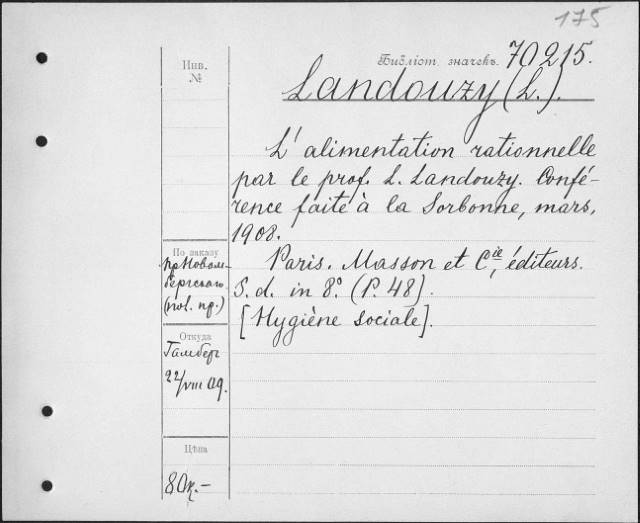 175
Инв.
№
Библіот. значекъ. 70215.
Landouzy (L.).
L'alimentation rationnelle
par le prof. L. Landouzy. Confé-
rence faite à la Sorbonne, mars,
1908.
Paris. Masson et Cie, éditeurs.
S. d. in 8º. (P. 48).
[Hygiène sociale].
По заказу
пр. Новом-
бергскаго
(пол. пр.)
Откуда
Гамбер
22/VIII 09.
Цѣна
80к.-